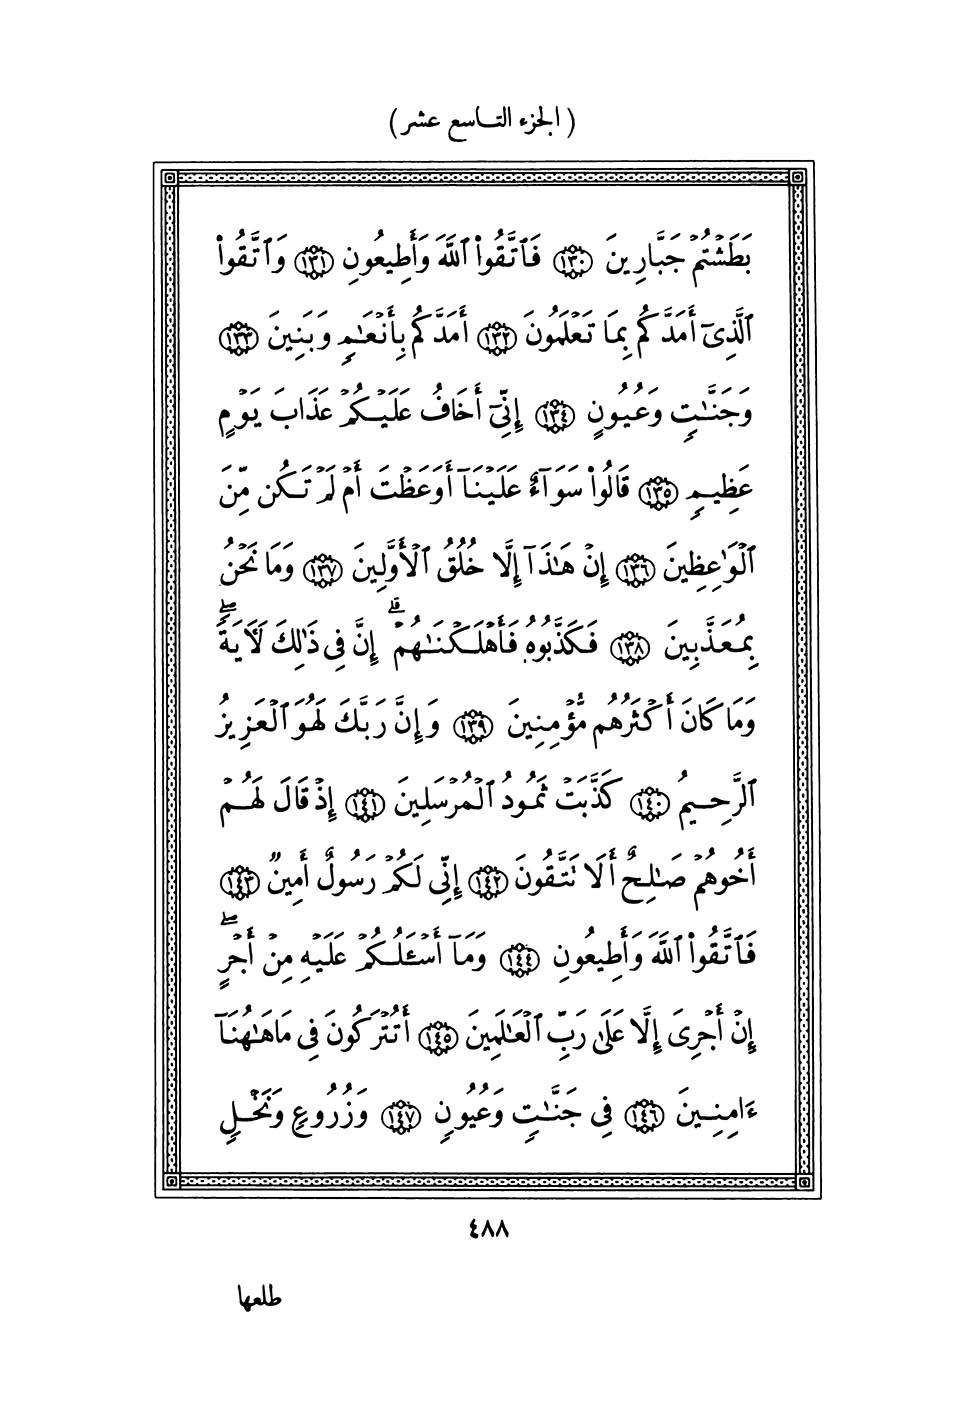 ( الجزء التاسع عشر )
بَطَشۡتُمۡ جَبَّارِينَ ١٣٠ فَٱتَّقُواْ ٱللَّهَ وَأَطِيعُونِ ١٣١ وَٱتَّقُواْ
ٱلَّذِيٓ أَمَدَّكُم بِمَا تَعۡلَمُونَ ١٣٢ أَمَدَّكُم بِأَنۡعَٰمٖ وَبَنِينَ ١٣٣
وَجَنَّٰتٖ وَعُيُونٍ ١٣٤ إِنِّيٓ أَخَافُ عَلَيۡكُمۡ عَذَابَ يَوۡمٍ
عَظِيمٖ ١٣٥ قَالُواْ سَوَآءٌ عَلَيۡنَآ أَوَعَظۡتَ أَمۡ لَمۡ تَكُن مِّنَ
ٱلۡوَٰعِظِينَ ١٣٦ إِنۡ هَٰذَآ إِلَّا خُلُقُ ٱلۡأَوَّلِينَ ١٣٧ وَمَا نَحۡنُ
بِمُعَذَّبِينَ ١٣٨ فَكَذَّبُوهُ فَأَهۡلَكۡنَٰهُمۡۚ إِنَّ فِي ذَٰلِكَ لَأٓيَةٗۖ
وَمَا كَانَ أَكۡثَرُهُم مُّؤۡمِنِينَ ١٣٩ وَإِنَّ رَبَّكَ لَهُوَ ٱلۡعَزِيزُ
ٱلرَّحِيمُ ١٤٠ كَذَّبَتۡ ثَمُودُ ٱلۡمُرۡسَلِينَ ١٤١ إِذۡ قَالَ لَهُمۡ
أَخُوهُمۡ صَٰلِحٌ أَلَا تَتَّقُونَ ١٤٢ إِنِّي لَكُمۡ رَسُولٌ أَمِينٞ ١٤٣
فَٱتَّقُواْ ٱللَّهَ وَأَطِيعُونِ ١٤٤ وَمَآ أَسۡـَٔلُكُمۡ عَلَيۡهِ مِنۡ أَجۡرٍۖ
إِنۡ أَجۡرِيَ إِلَّا عَلَىٰ رَبِّ ٱلۡعَٰلَمِينَ ١٤٥ أَتُتۡرَكُونَ فِي مَا هَٰهُنَآ
ءَامِنِينَ ١٤٦ فِي جَنَّٰتٖ وَعُيُونٖ ١٤٧ وَزُرُوعٖ وَنَخۡلٖ
٤٨٨
طلعها